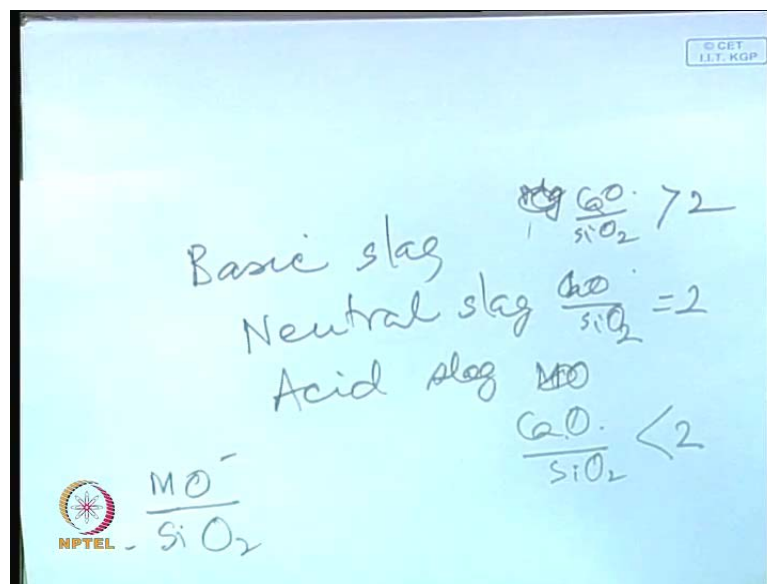 © CET
I.I.T. KGP
Basic slag CaO / SiO2 > 2
Neutral slag CaO / SiO2 = 2
Acid slag
CaO / SiO2 < 2
MO / SiO2
NPTEL